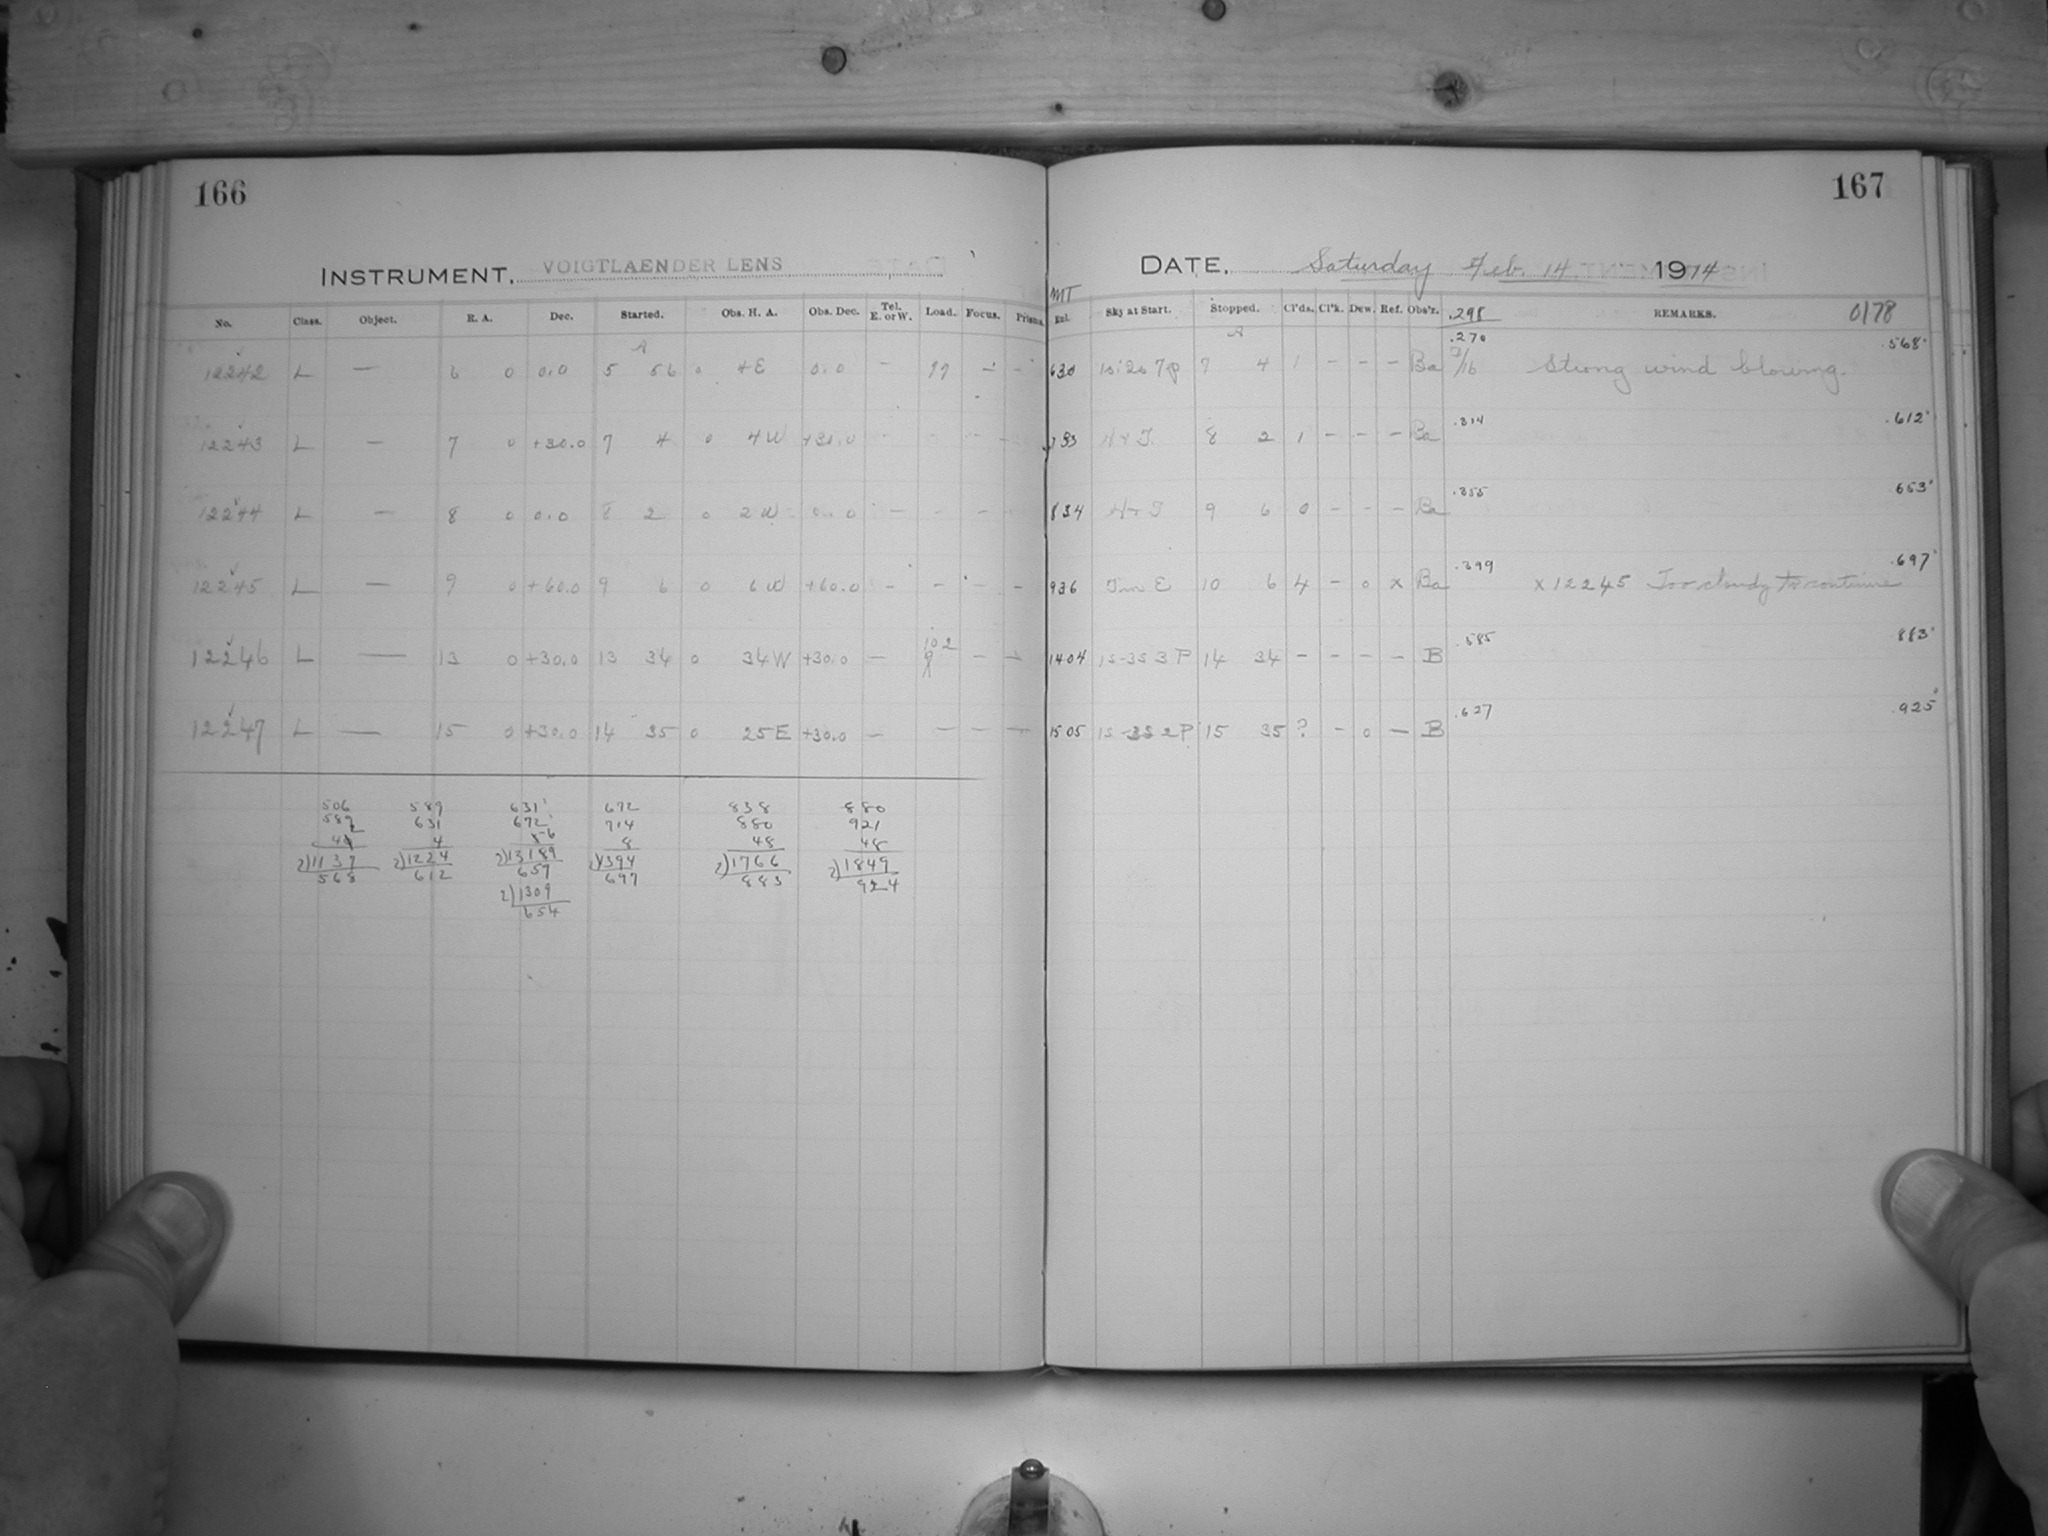 166
INSTRUMENT, VOIGTLAENDER LENS
No. Class. Object. R. A. Dec. Started. Obs. H. A. Obs. Dec. Tel. E. or W. Load. Focus. Prisms.
12242 L — 6 0 0.0 5 56 0 4E 0.0 — — —
12243 L — 7 0 +30.0 7 4 0 4W +30.0 - - - -
12244 L — 8 0 0.0 8 2 0 2W 0.0 — - - -
12245 L — 9 0 +60.0 9 6 0 6W +60.0 - - - -
12246 L — 13 0 +30.0 13 34 0 34W +30.0 — 102 — —
12247 L — 15 0 +30.0 14 35 0 25E +30.0 — — — —
506 589 631 672 838 880
589 631 672 714 880 921
4 8 48 48
2)1137 2)1224 2)1394 2)1766 2)1849
568 612 657 697 883 924
2)1309
654
167
DATE, Saturday Feb. 14 1914
MT
Sky at Start. Stopped. Cl'ds. Cl'k. Dew. Ref. Obs'r. .298 REMARKS. 0178
630 7 4 1 - - - Ba .270 Strong wind blowing. .568
733 8 2 1 - - - Ba .314 .612
834 9 6 0 - - - Ba .355 653
936 10 6 4 - 0 x Ba .399 x 12245 Too cloudy to continue .697
1404 1s-3s 3P 14 34 - - - - B .585 883
1505 1s-3s 2P 15 35 ? - 0 — B .627 .925